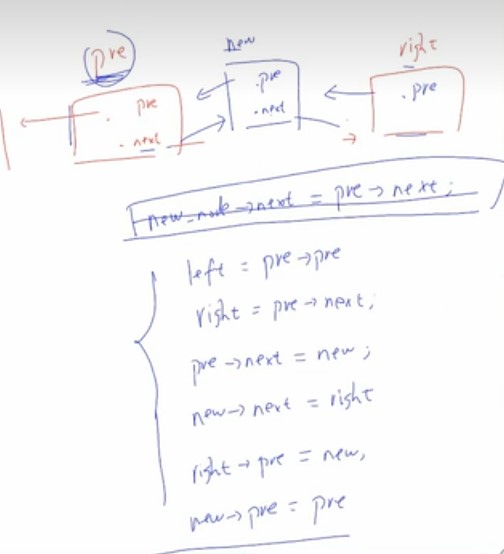 pre
new
right
. pre
. next
. pre
. next
. pre
new_node->next = pre->next;
left = pre->pre
right = pre->next;
pre->next = new;
new->next = right
right->pre = new,
new->pre = pre